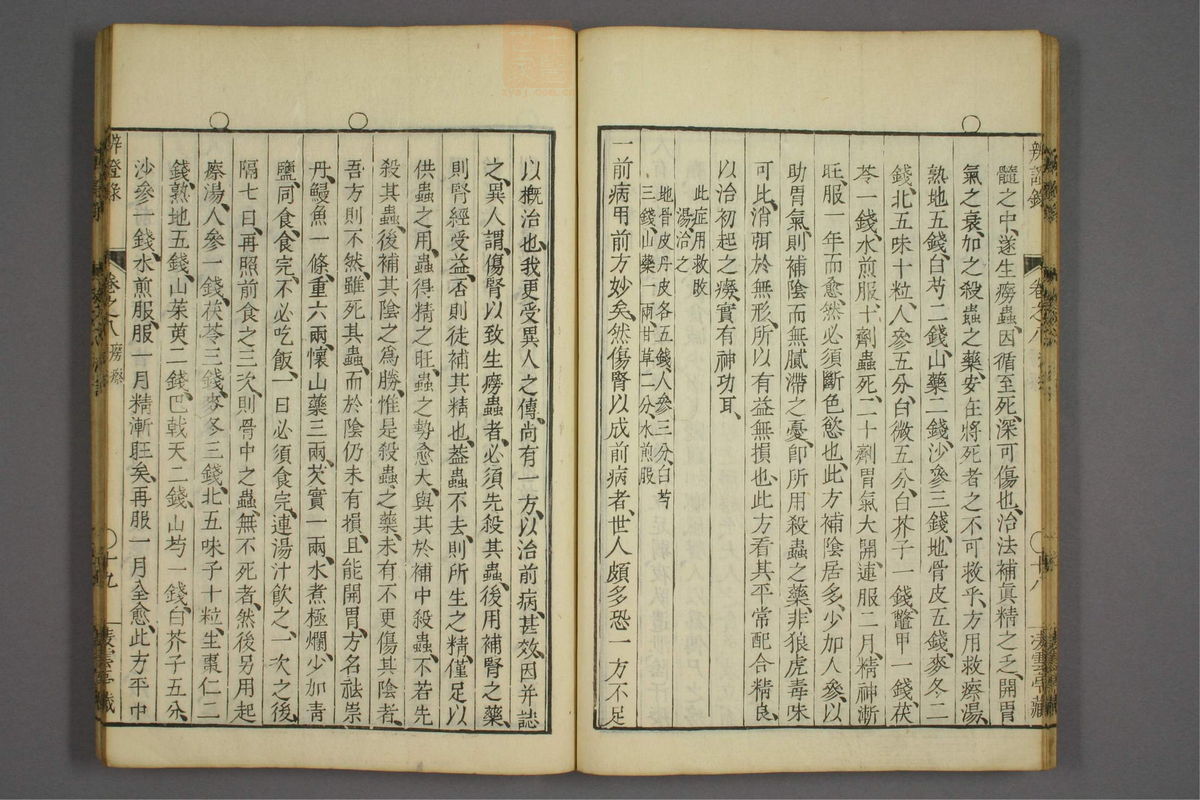 辨證錄
卷之八
十八
髓之中、遂生癆蟲、因循至死、深可傷也、治法補眞精之乏、開胃
氣之衰、加之殺蟲之藥、安在將死者之不可救乎、方用救瘵湯、
熟地五錢、白芍二錢、山藥二錢、沙參三錢、地骨皮五錢、麥冬二
錢、北五味十粒、人參五分、白薇五分、白芥子一錢、鱉甲一錢、茯
苓一錢、水煎服、十劑蟲死、二十劑胃氣大開、連服二月、精神漸
旺、服一年而愈、然必須斷色慾也、此方補陰居多、少加人參、以
助胃氣、則補陰而無膩滯之憂、卽所用殺蟲之藥、非狼虎毒味
可比、消弭於無形、所以有益無損也、此方看其平常配合精良、
以治初起之癆、實有神功耳、
此症用救敗
湯治之
地骨皮丹皮各五錢、人參三分、白芍
三錢、山藥一兩、甘草二分、水煎服
一前病用前方妙矣、然傷腎以成前病者、世人頗多、恐一方不足
以概治也、我更受異人之傳、尚有一方、以治前病、甚效、因并誌
之、異人謂、傷腎以致生癆蟲者、必須先殺其蟲、後用補腎之藥、
則腎經受益、否則徒補其精也、蓋蟲不去、則所生之精、僅足以
供蟲之用、蟲得精之旺、蟲之勢愈大、與其於補中殺蟲、不若先
殺其蟲、後補其陰之爲勝、惟是殺蟲之藥、未有不更傷其陰者、
吾方則不然、雖死其蟲、而於陰仍未有損、且能開胃、方名祛祟
丹、鰻魚一條、重六兩、懷山藥三兩、芡實一兩、水煮極爛、少加青
鹽、同食、食完、不必吃飯、一日必須食完、連湯汁飲之、一次之後、
隔七日、再照前食之三次、則骨中之蟲、無不死者、然後另用起
瘵湯、人參一錢、茯苓三錢、麥冬三錢、北五味子十粒、生棗仁二
錢、熟地五錢、山茱萸二錢、巴戟天二錢、山芍一錢、白芥子五分、
沙參一錢、水煎服、服一月精漸旺矣、再服一月全愈、此方平中
辨證錄
卷之八
癆瘵
十九